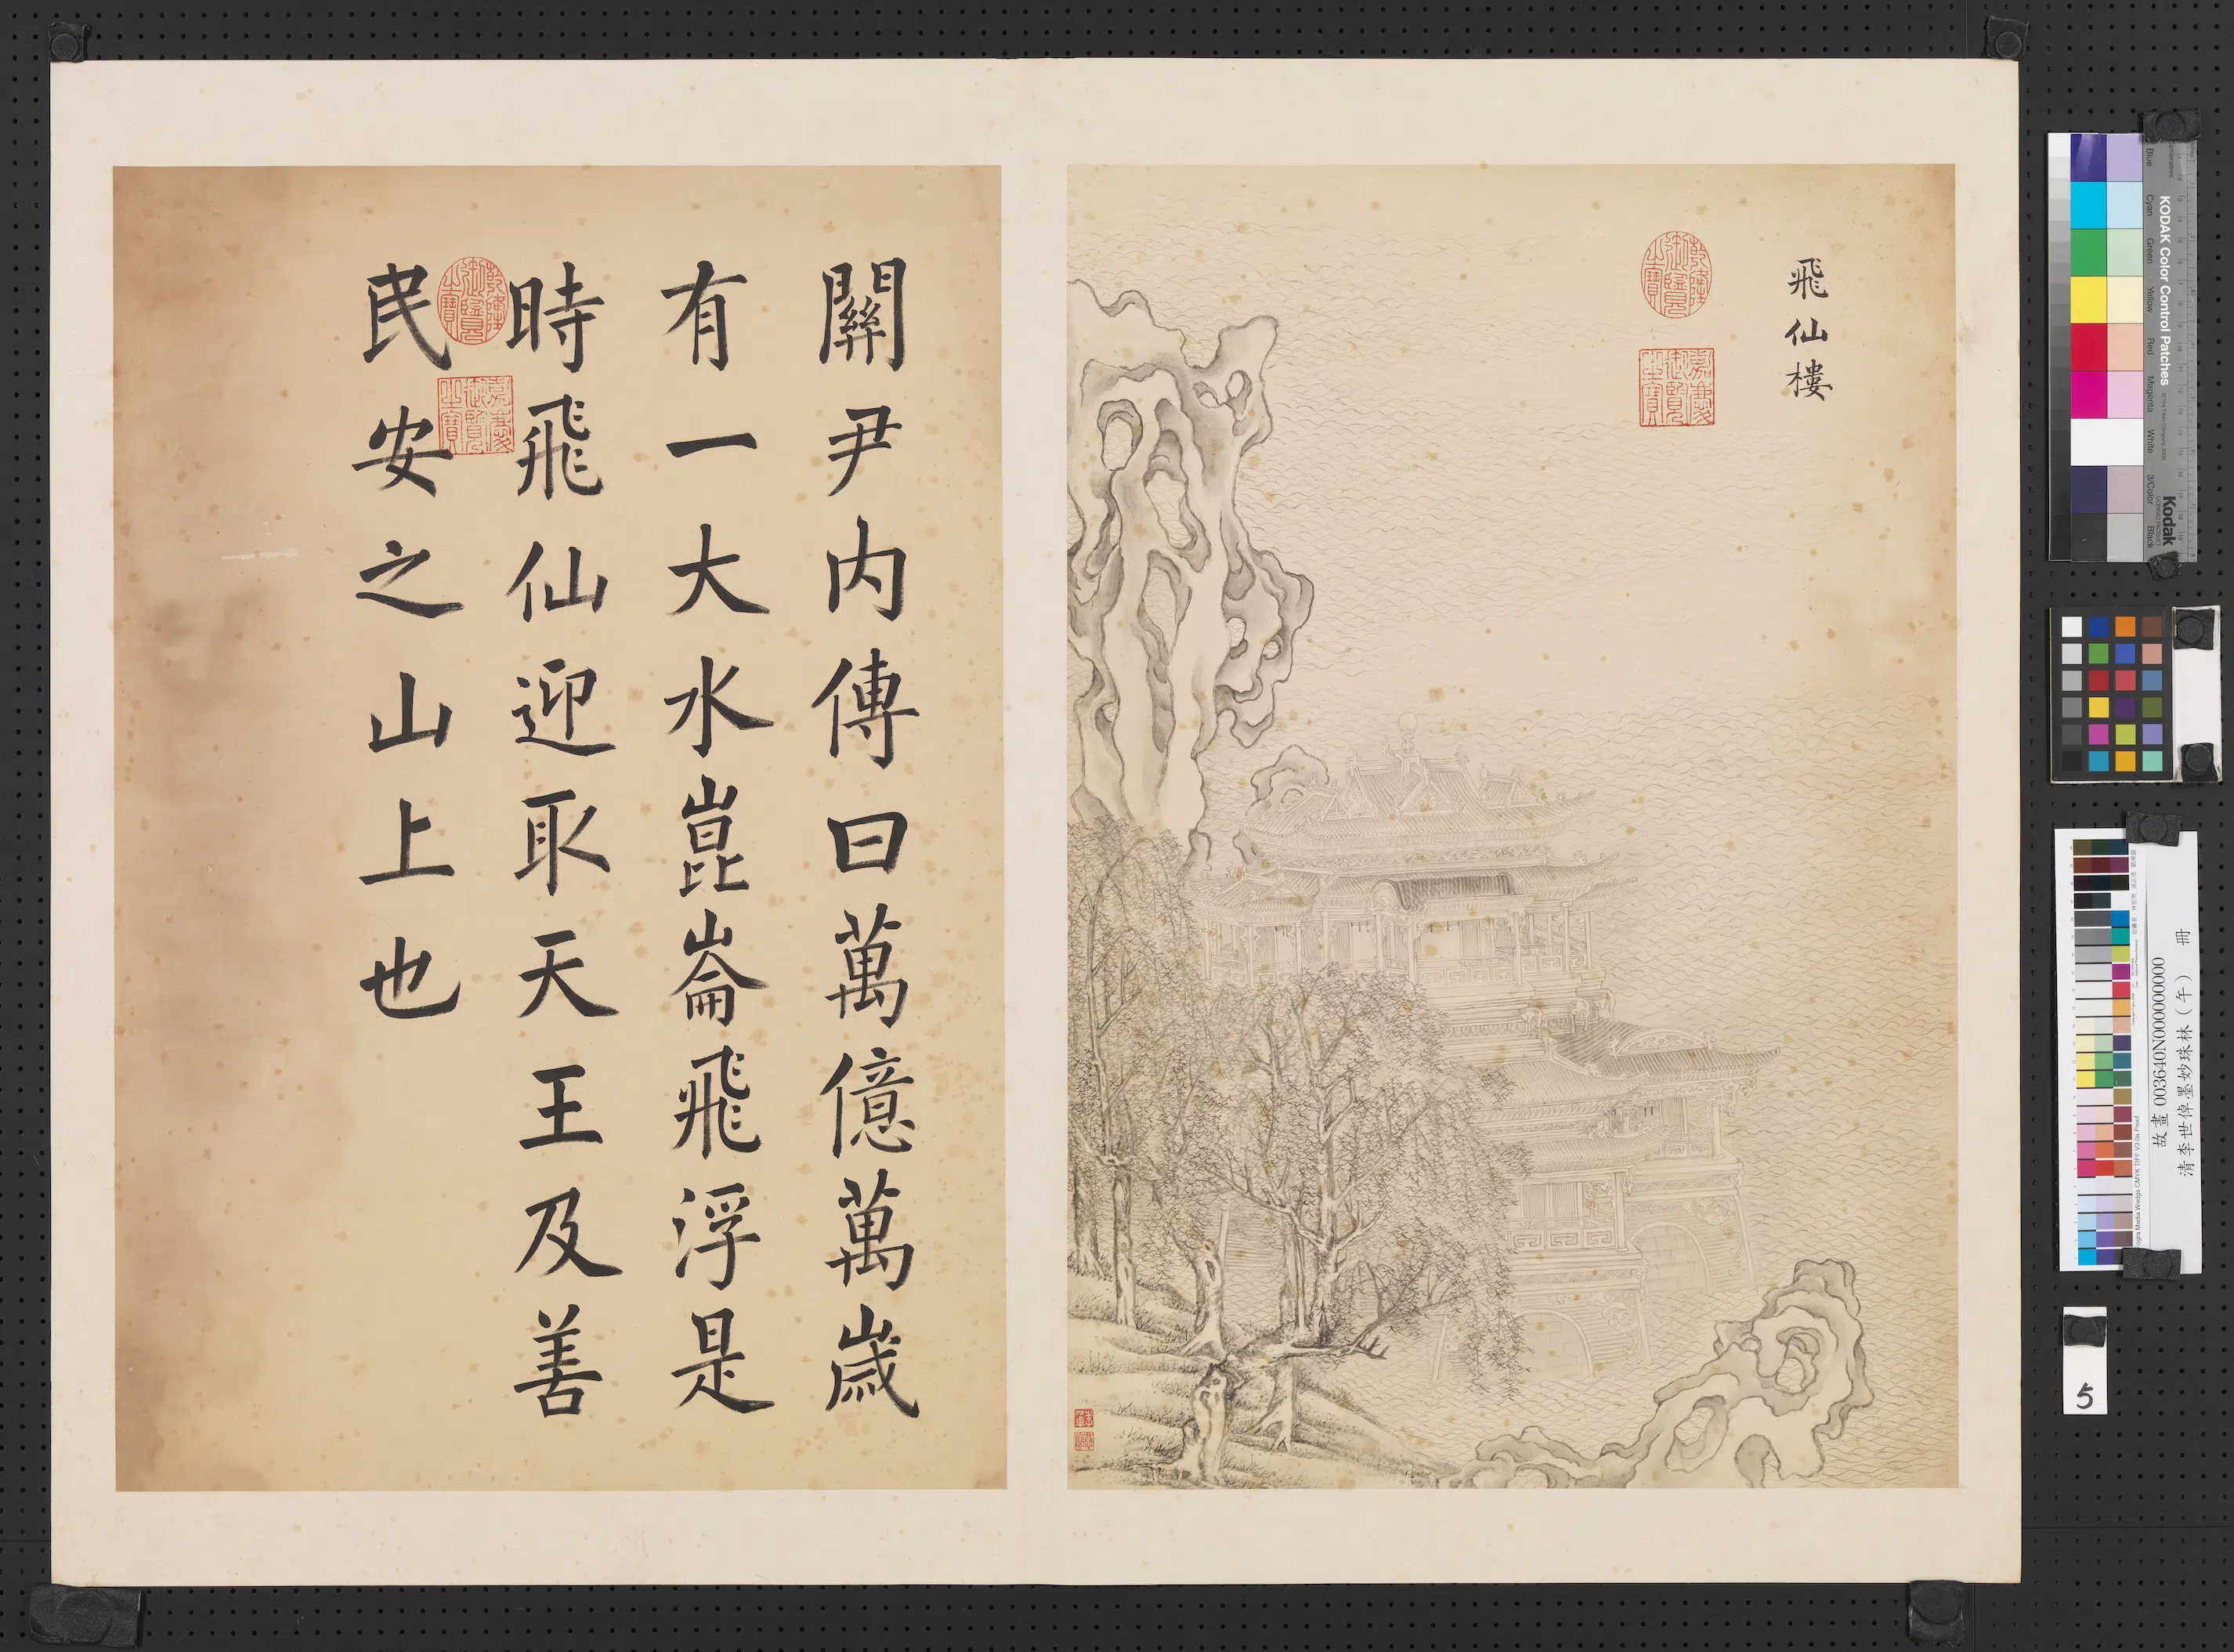 飛仙樓
乾隆御覽之寶
嘉慶御覽之寶
關尹内傳曰萬億萬歲
有一大水崑崙飛浮是
時飛仙迎取天王及善
民安之山上也
乾隆御覽之寶
嘉慶御覽之寶
KODAK Color Control Patches
Blue Cyan Green Yellow Red Magenta White 3/Color Black
Kodak
故畫 003640N000000000
清李世倬墨妙珠林(午) 冊
5